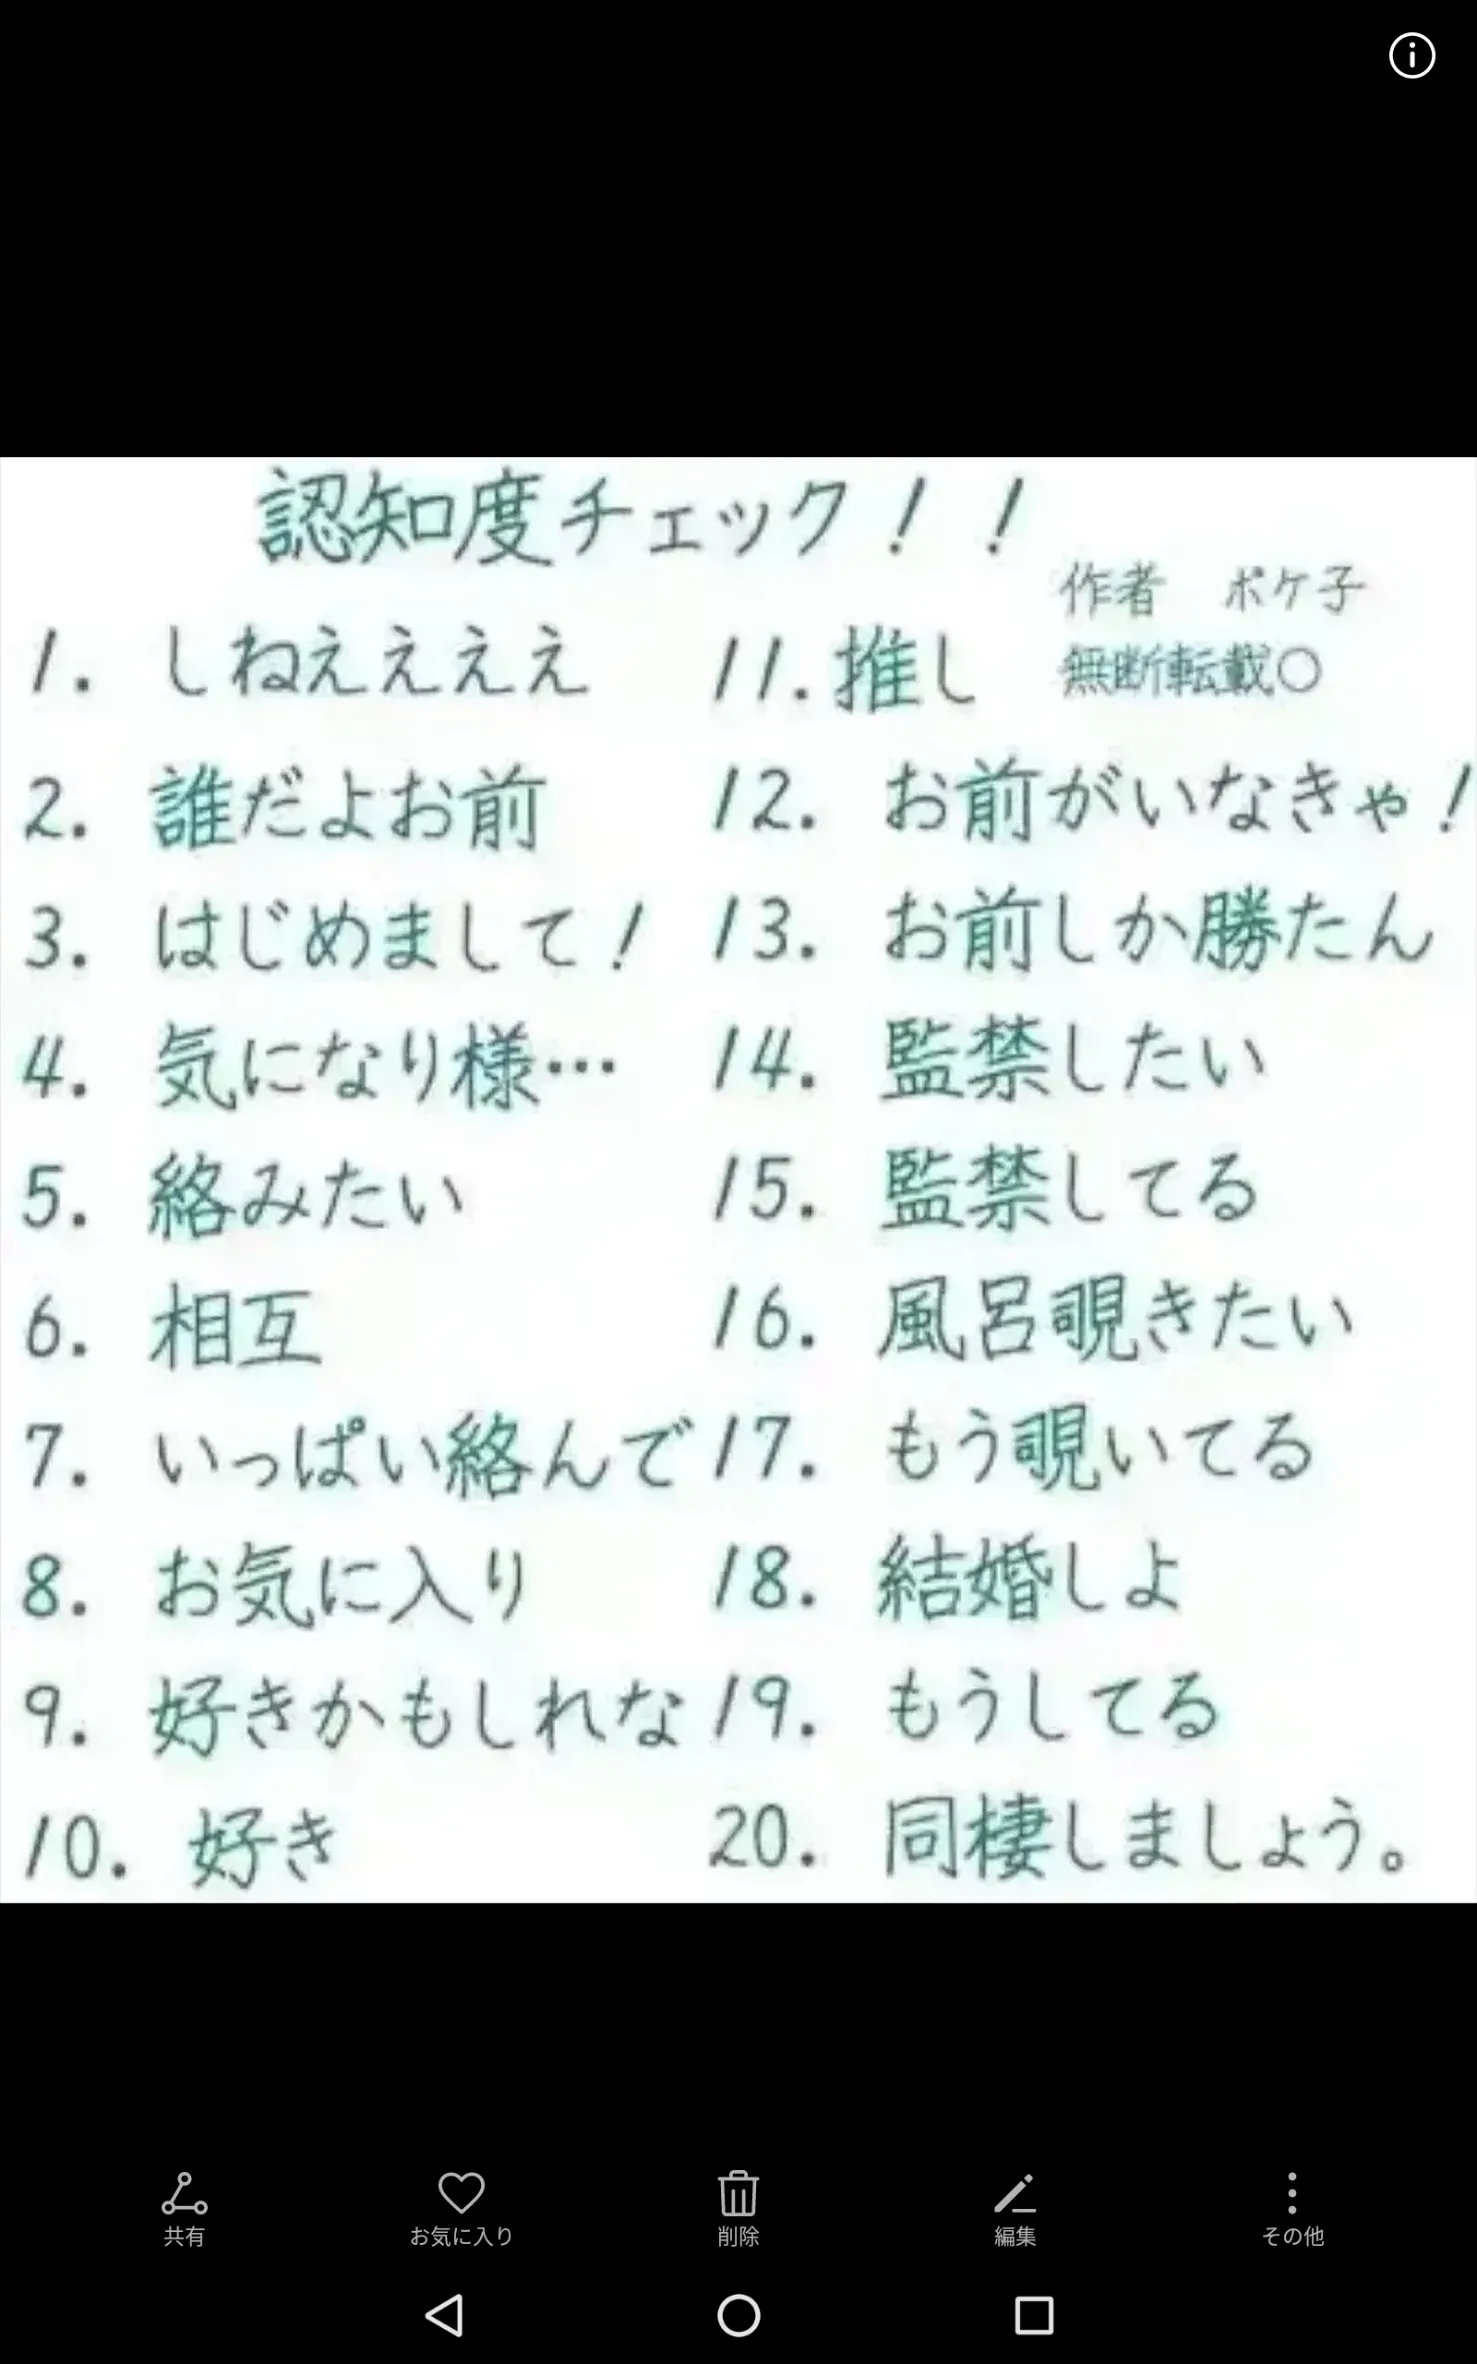 認知度チェック！！
作者　ポケ子
無断転載〇
1. しねええええ
2. 誰だよお前
3. はじめまして！
4. 気になり様…
5. 絡みたい
6. 相互
7. いっぱい絡んで
8. お気に入り
9. 好きかもしれな
10. 好き
11. 推し
12. お前がいなきゃ！
13. お前しか勝たん
14. 監禁したい
15. 監禁してる
16. 風呂覗きたい
17. もう覗いてる
18. 結婚しよ
19. もうしてる
20. 同棲しましょう。
共有
お気に入り
削除
編集
その他